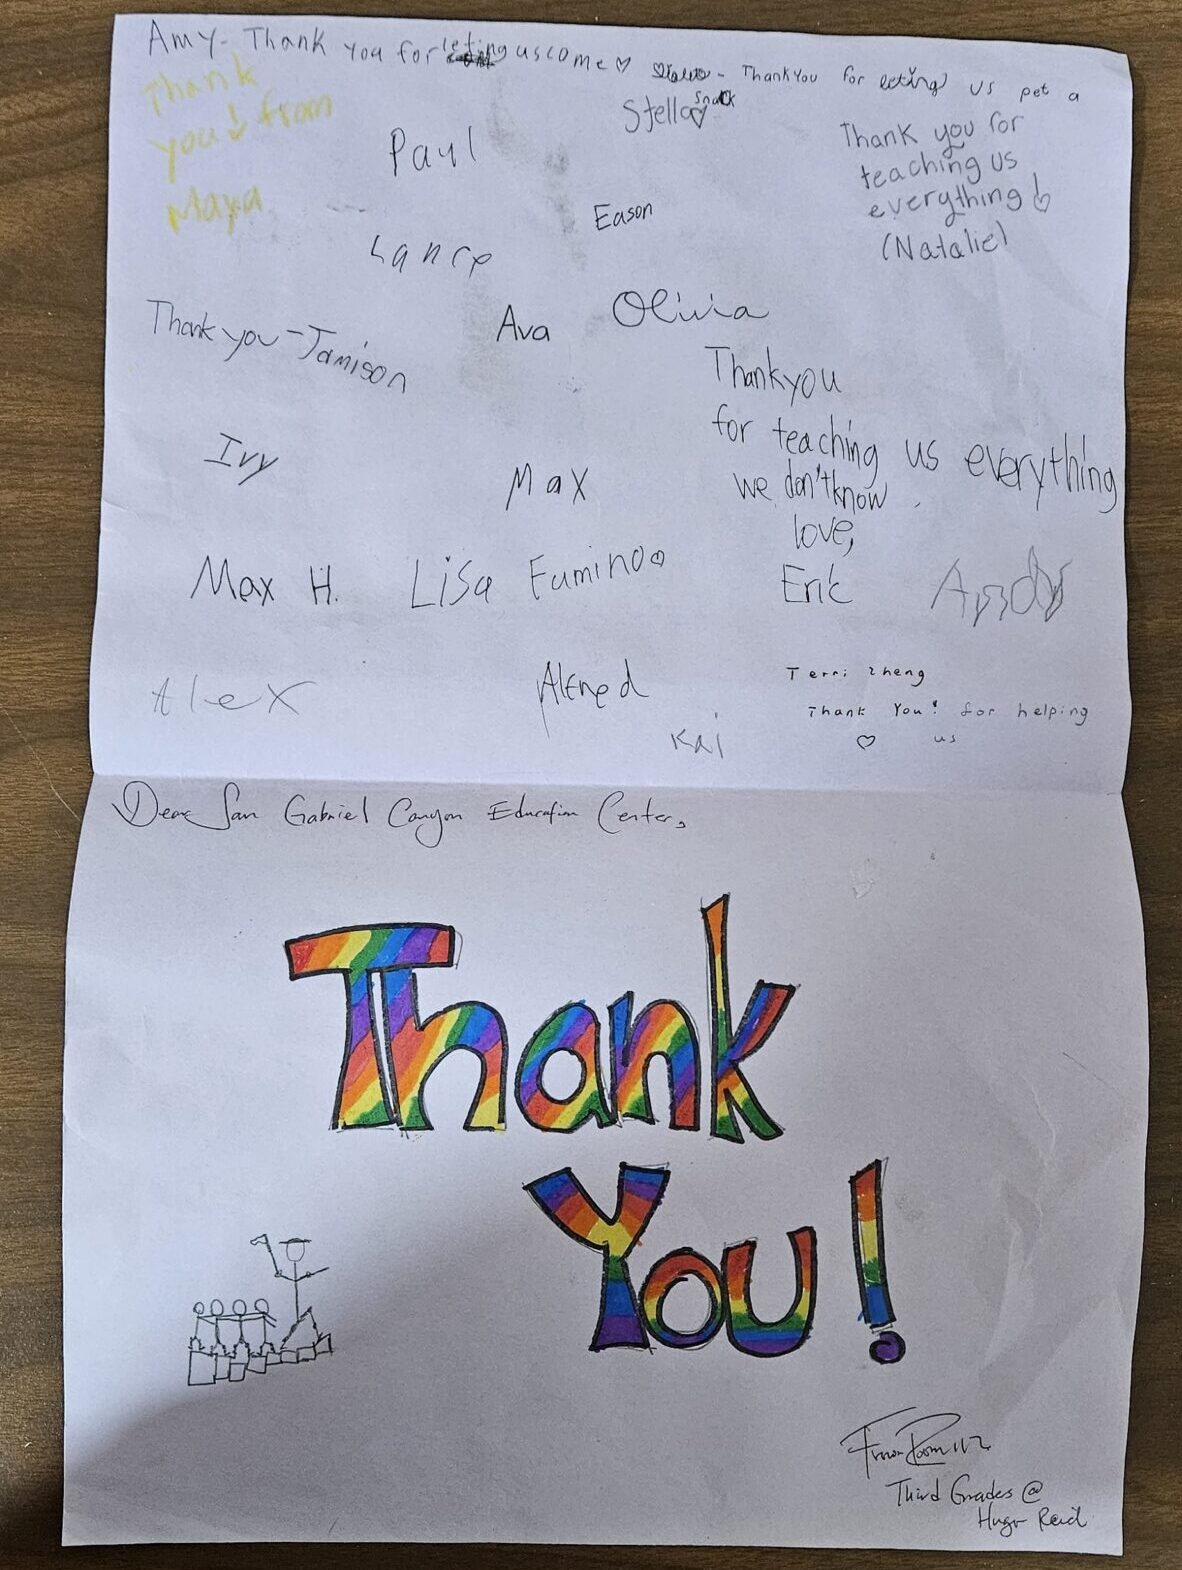 Amy - Thank you for leting us come ♡
Thank you for letting us pet a
snack
Thank
you from
Maya
Paul
Stella
Thank you for
teaching us
everything
(Natalie)
Eason
Lance
Thank you - Jamison
Ava
Olivia
Thankyou
for teaching us everything
we don't know
love,
Eric
Ivy
Max
Max H.
Lisa
Fumino
Andy
Alex
Alfred
Kai
Terri Zheng
Thank You! for helping
♡ us
Dear San Gabriel Canyon Education Center,
Thank
You!
From Room 112
Third Grades @
Hugo Reid